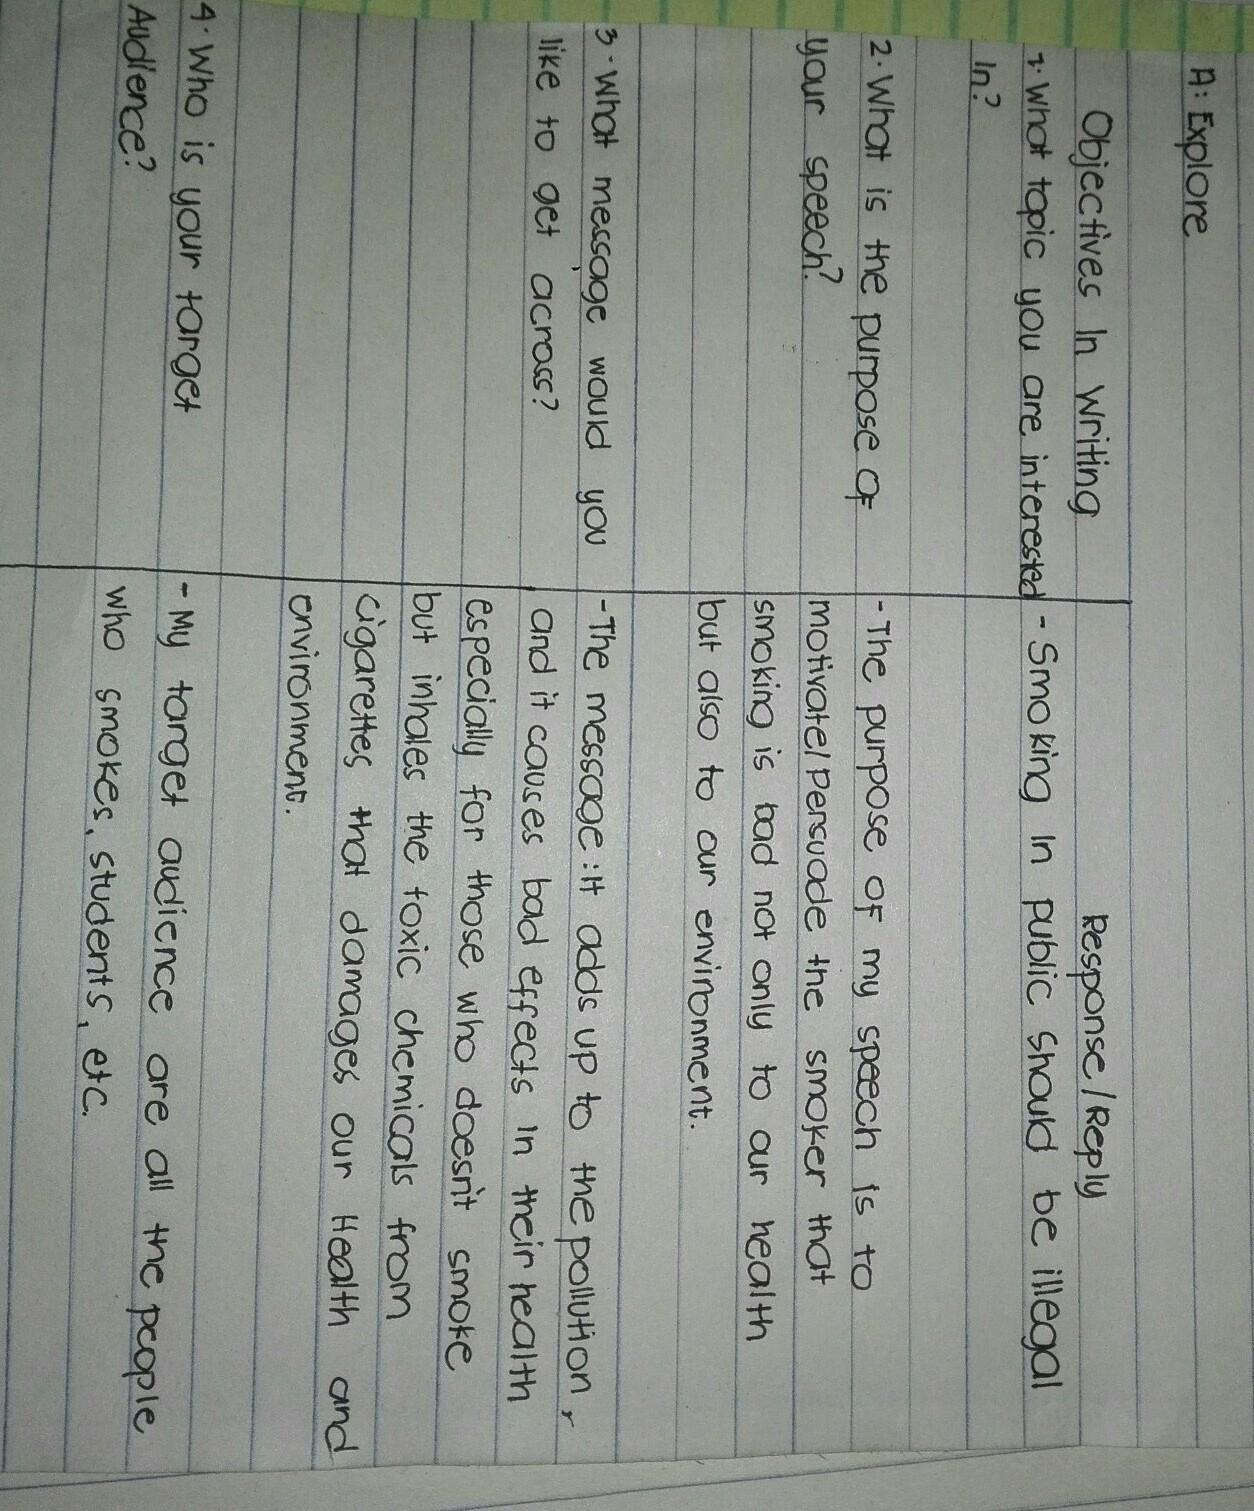 A: Explore
Objectives In Writing
Response/Reply
1. What topic you are interested
In?
- Smoking In public should be illegal
2. What is the purpose OF
your speech?
- The purpose OF my speech is to
motivate/Persuade the smoker that
smoking is bad not only to our health
but also to our environment.
3. What message would you
like to get across?
- The message: it adds up to the pollution,
and it causes bad effects In their health
especially for those who doesn't smoke
but inhales the toxic chemicals from
cigarettes that damages our Health and
environment.
4. Who is your target
Audience?
- My target audience are all the people
who smokes, students, etc.